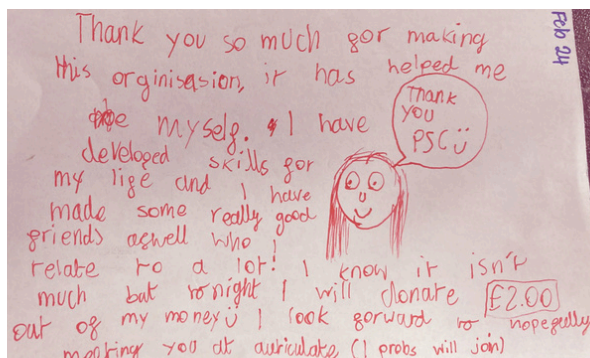 Feb 24
Thank you so much for making
this orginisasion, it has helped me
be myself. I have
Thank
you
PSC Ü
developed skills for
my life and I have
made some really good
friends aswell who I
relate to a lot! I know it isn't
much but tonight I will donate £2.00
out of my money Ü I look forward to hopefully
meeting you at auriculate (I probs will join)